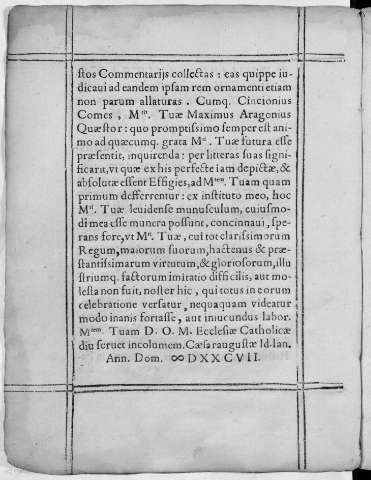 stos Commentarijs collectas: eas quippe iu-
dicaui ad eandem ipsam rem ornamenti etiam
non parum allaturas. Cumq. Cincionius
Comes, Mtis. Tuæ Maximus Aragenius
Quæstor: quo promptissimo semper est ani-
mo ad quæcumq. grata Mti. Tuæ futura esse
præsentit, inquirenda: per litteras suas signi-
ficarit, vt quæ ex his perfecte iam depictæ, &
absolutæ essent Effigies, ad Mtem. Tuam quam
primum defferrentur: ex instituto meo, hoc
Mti. Tuæ leuidense munusculum, cuiusmo-
di mea esse munera possunt, concinnaui, spe-
rans fore, vt Mti. Tuæ, cui tot clarissimorum
Regum, maiorum suorum, hactenus & præ-
stantissimarum virtutum, & gloriosorum, illu
striumq. factorum imitatio difficilis, aut mo-
lesta non fuit, noster hic, qui totus in eorum
celebratione versatur, nequaquam videatur
modo inanis fortasse, aut iniucundus labor.
Mtem. Tuam D. O. M. Ecclesiæ Catholicæ
diu seruet incolumem. Cæsaraugustæ Id. Ian.
Ann. Dom. ∞DXXCVII.